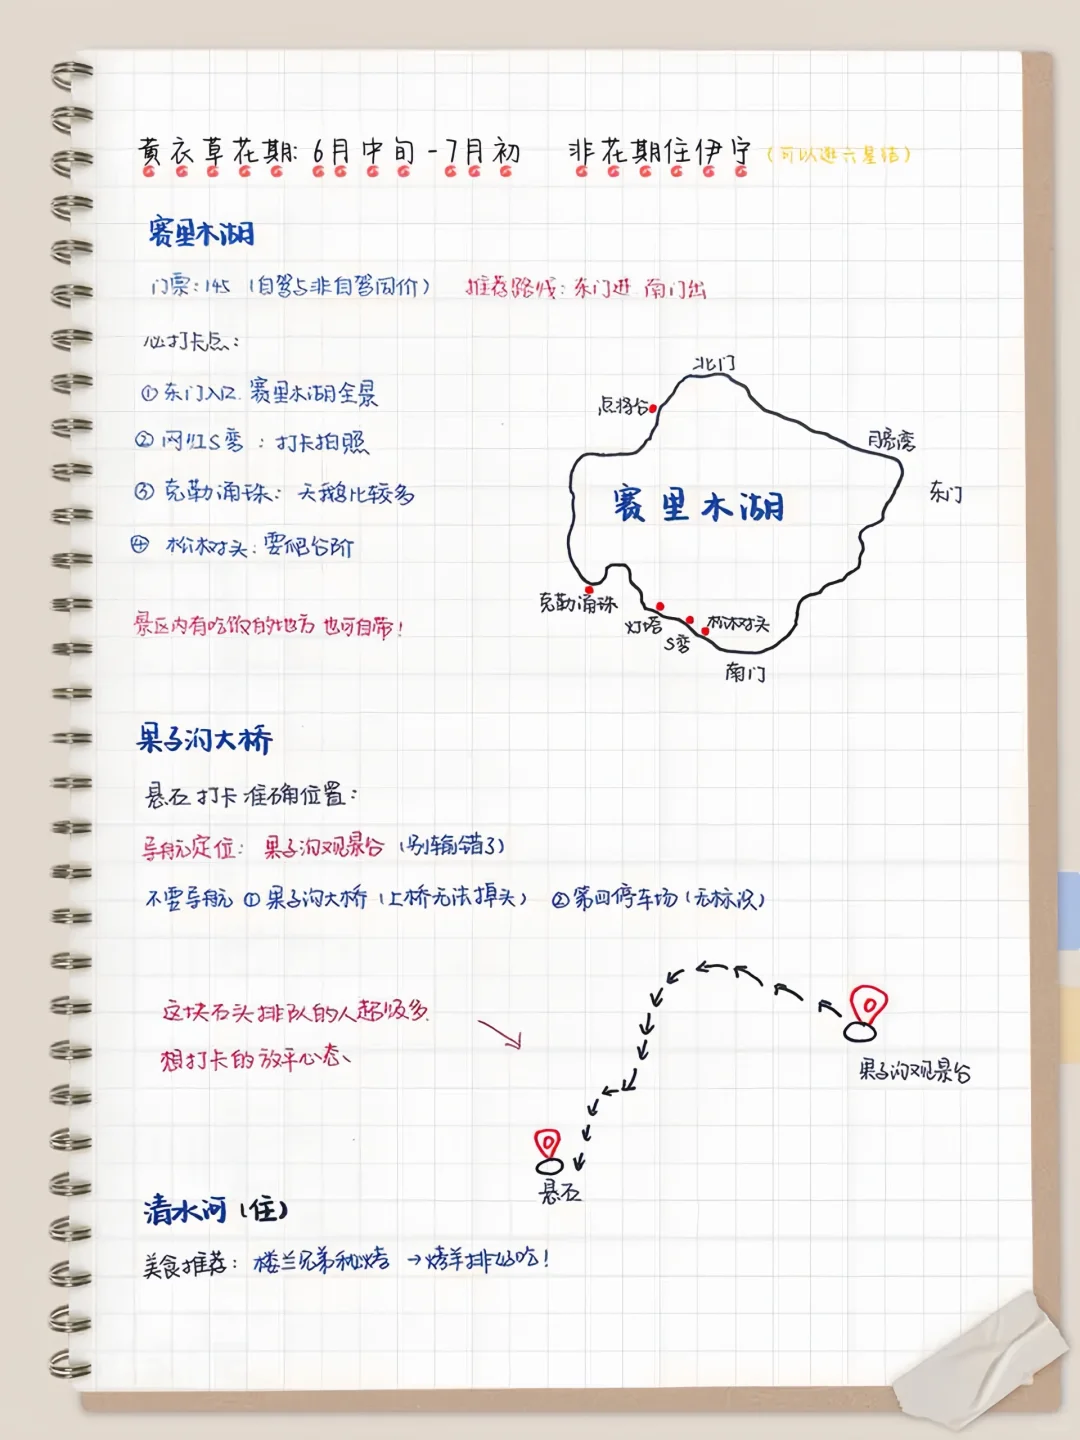 黄衣草花期:6月中旬-7月初 非花期住伊宁(可以逛六星街)
赛里木湖
门票:145 (自驾与非自驾同价) 推荐路线:东门进 南门出
必打卡点:
①东门入口 赛里木湖全景
②网红S弯:打卡拍照
③克勒涌珠:天鹅比较多
④ 松树头:要爬台阶
景区内有吃饭的地方 也可自带!
北门
点将台
月亮湾
东门
赛里木湖
克勒涌珠
灯塔
S弯
松树头
南门
果子沟大桥
悬石打卡准确位置:
导航定位:果子沟观景台(别输错了)
不要导航 ①果子沟大桥(上桥无法掉头) ②第四停车场(无标识)
这块石头排队的人超级多.
想打卡的放平心态、
果子沟观景台
悬石
清水河(住)
美食推荐:楼兰兄弟秘烤 →烤羊排好吃!